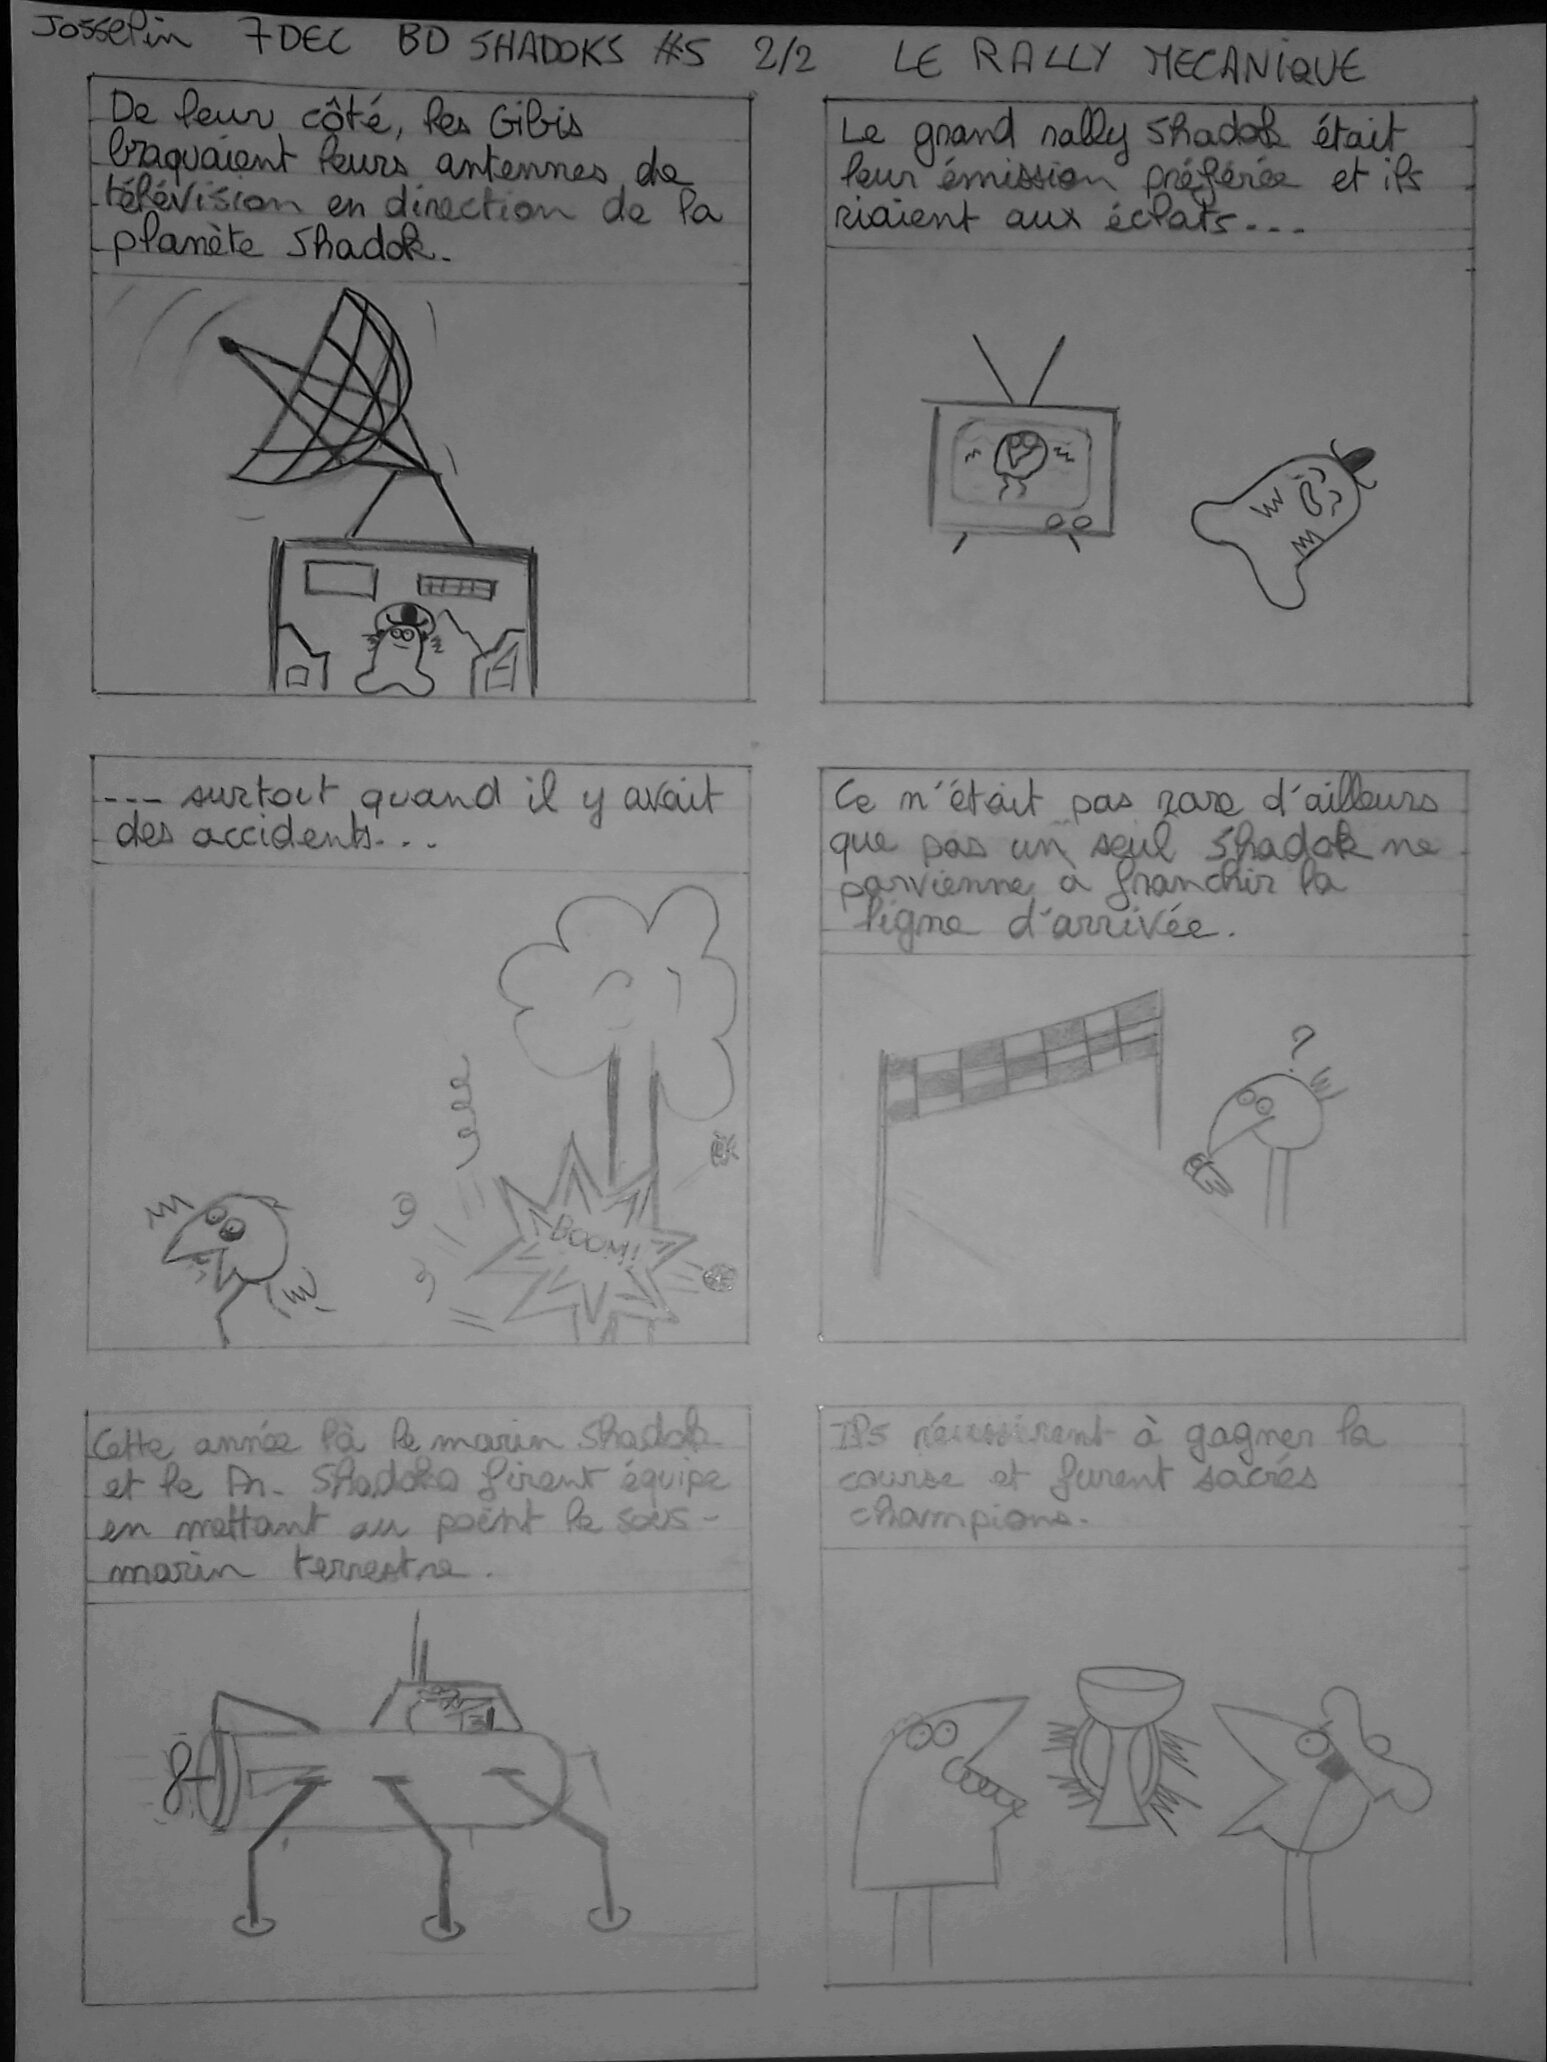 Josselin 7 DEC BD SHADOKS #5 2/2 LE RALLY MECANIQUE
De leur côté, les Gibis
braquaient leurs antennes de
télévision en direction de la
planète Shadok.
Le grand rally Shadok était
leur émission préférée et ils
riaient aux éclats...
... surtout quand il y avait
des accidents...
BOOM!
Ce n'était pas rare d'ailleurs
que pas un seul Shadok ne
parvienne a franchir la
ligne d'arrivée.
?
Cette année là le marin Shadok
et le Pr. Shadoko firent équipe
en mettant au point le sous-
marin terrestre.
Ils réussirent à gagner la
course et furent sacrés
champions.